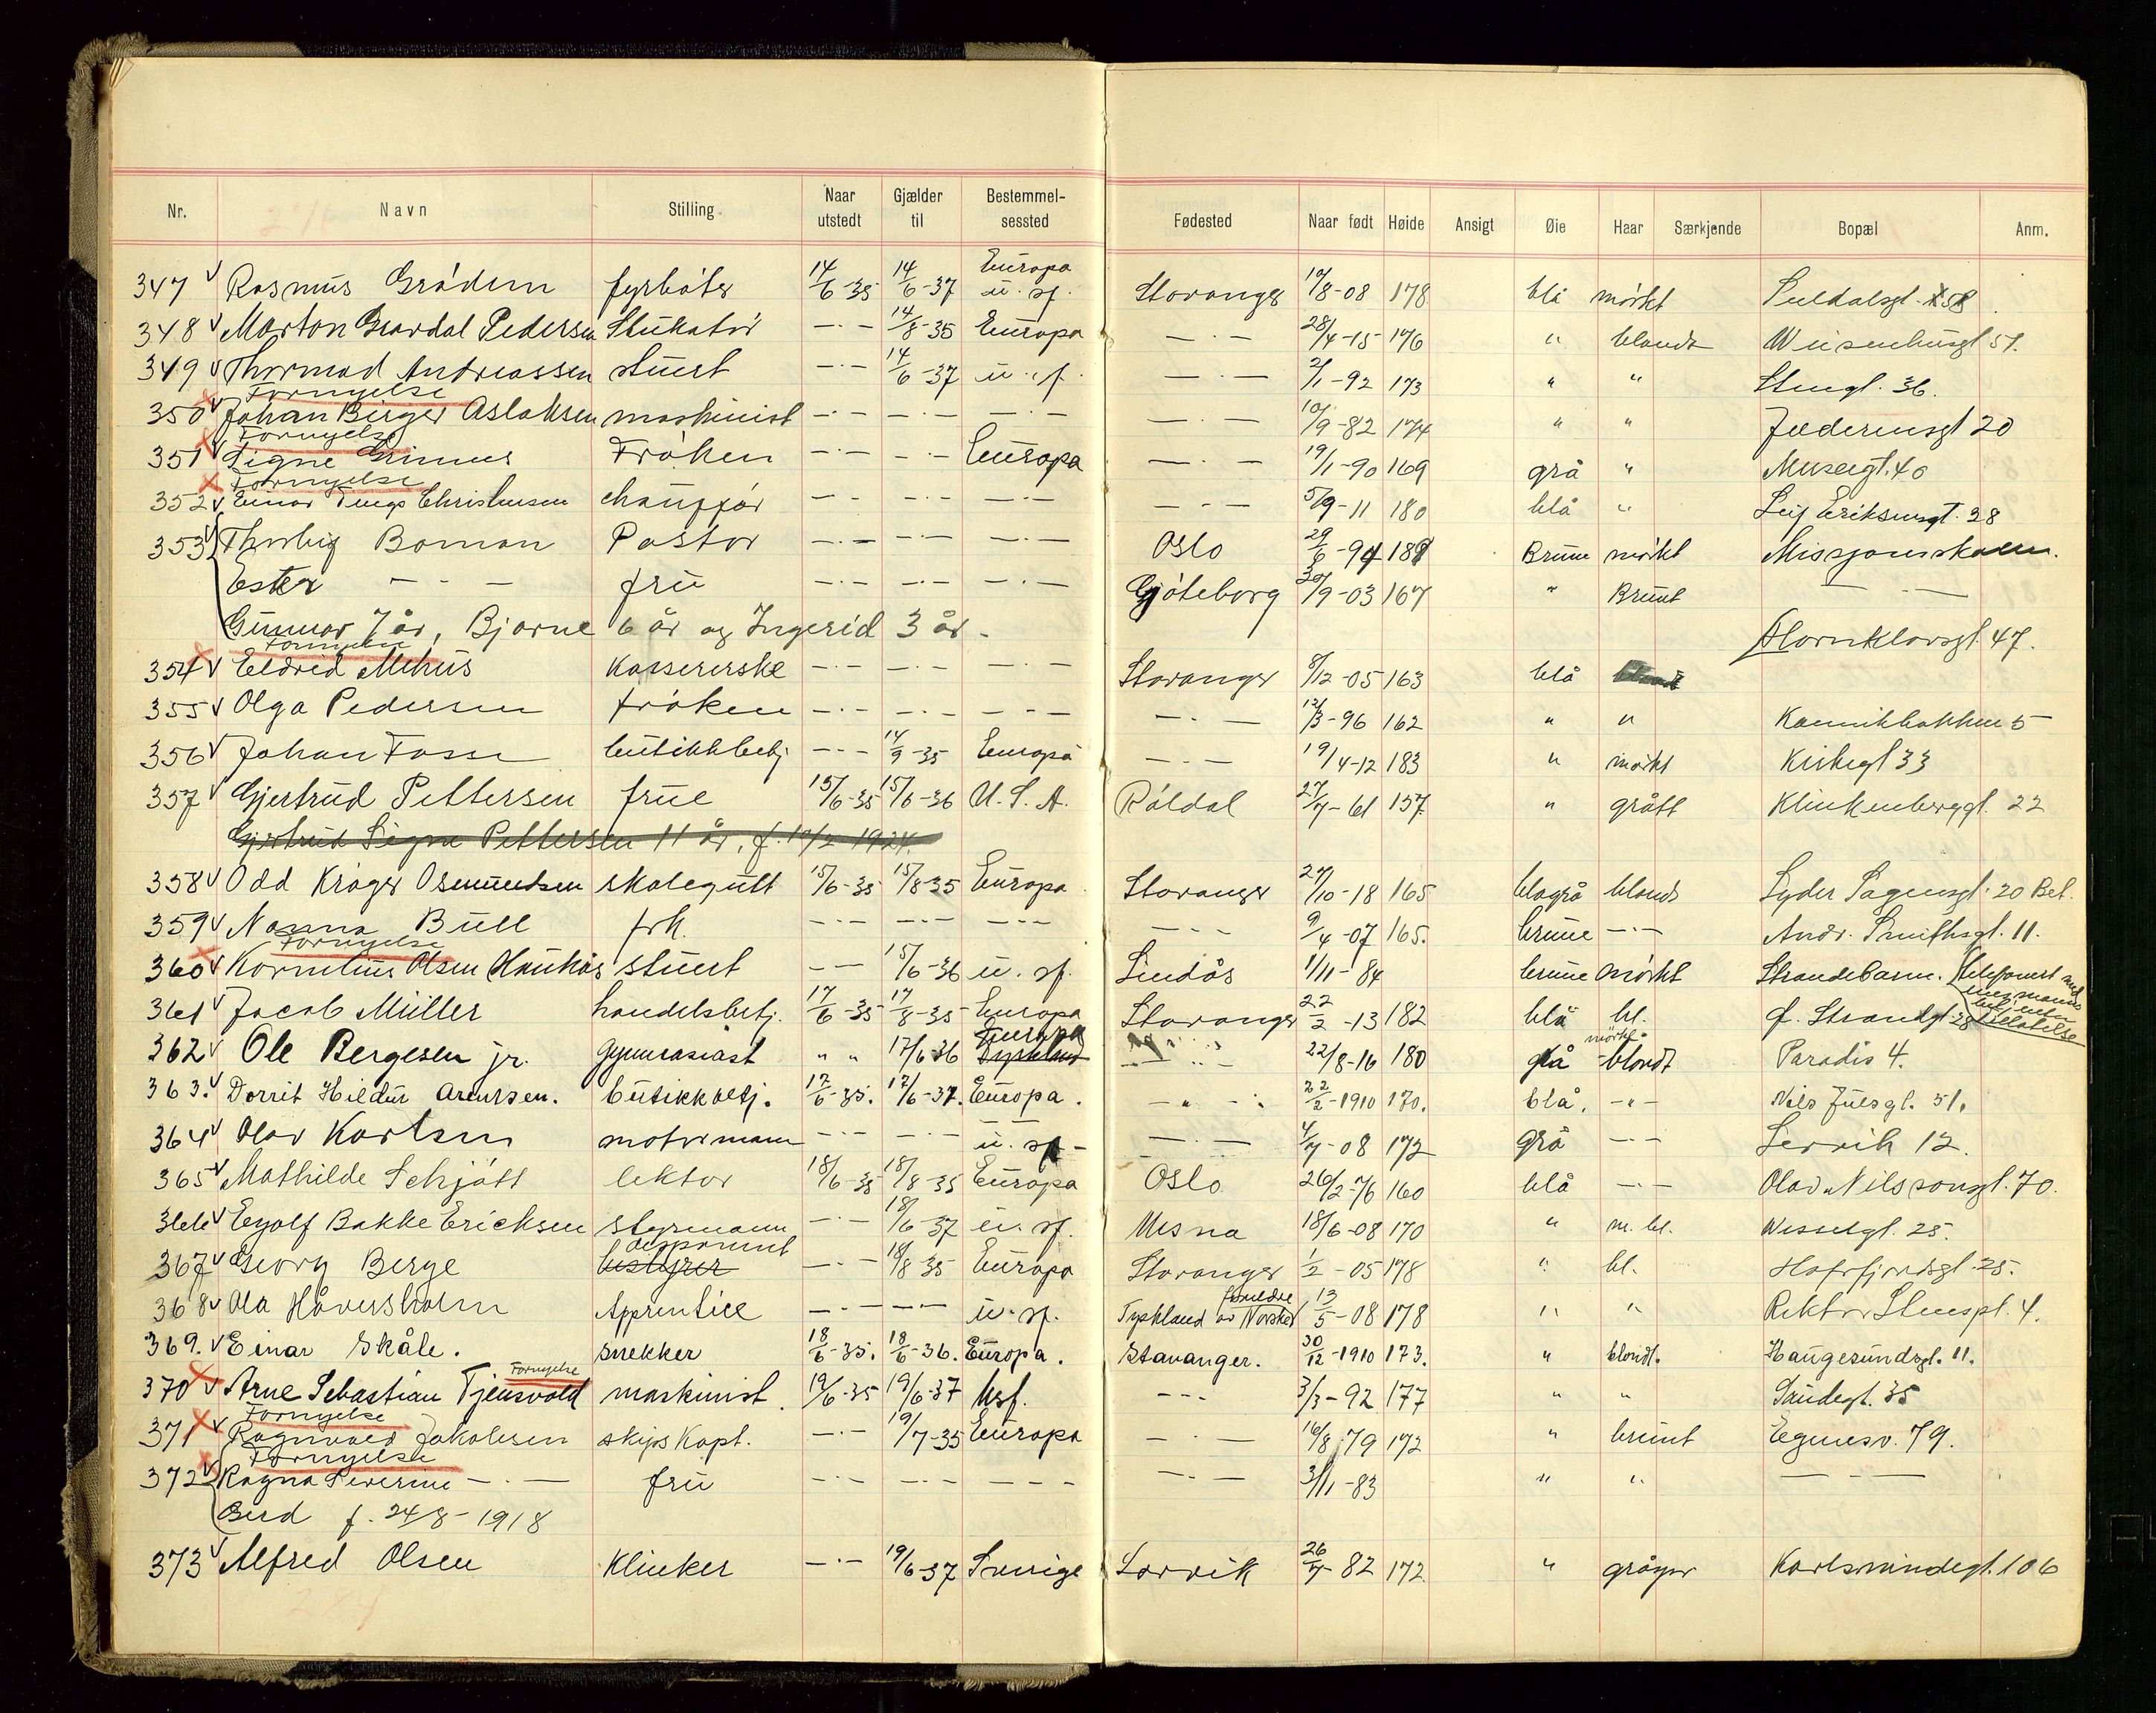 Nr. Navn Stilling Naar utstedt Gjælder til Bestemmel-sessted Fødested Naar født Høide Ansigt Øie Haar Særkjende Bopæl Anm.
347 Rasmus Grødem fyrbøter 14/6-35 14/6-37 Europa u. sf. Stavanger 10/8-08 178 blå mørkt Suldalsgt. 58
348 Marton Grardal Pedersen Stukatør —·— 14/8-35 Europa —·— 28/4-15 176 " blondt Weisenhusgt 51.
349 Thormod Andreassen stuert —·— 14/6-37 u. sf. —·— 2/1-92 173 " " Stengt. 36.
Fornyelse
350 Johan Birger Aslaksen maskinist —·— —·— —·— —·— 10/9-82 174 " " Jæderensgt 20
Fornyelse
351 Signe Grimer Frøken —·— —·— Europa —·— 19/1-90 169 grå " Museegt. 40
Fornyelse
352 Einar Tengs Christensen chauffør —·— —·— —·— —·— 5/9-11 180 blå " Leif Eriksensgt. 28
353 Thorleif Boman Pastor —·— —·— —·— Oslo 29/6-94 189 Brune mørkt Missjonsskolen.
Ester — - — fru —·— —·— —·— Gjøteborg 30/9-03 167 " Brunt — —
Gunnar 7 år, Bjarne 6 år og Ingerid 3 år.
Fornyelse
354 Eldrid Mehus Kassererske —·— —·— —·— Stavanger 8/12-05 163 blå blondt Hornklovsgt. 47.
355 Olga Pedersen frøken —·— —·— —·— —·— 12/3-96 162 " " Kannikbakken 5
356 Johan Foss butikkbetj —·— 14/9-35 Europa —·— 19/4-12 183 " mørkt Kirkegt 33
357 Gjertrud Pettersen frue 15/6-35 15/6-36 U.S.A. Røldal 27/7-61 157 " grått Klinkenberggt. 22
Gjertrud Signe Pettersen 11 år, f. 10/2 1924.
358 Odd Krøger Osmundsen skolegutt 15/6-35 15/8-35 Europa Stavanger 27/10-18 165 blågrå blondt Lyder Sagensgt. 20 Bet.
359 Nanna Bull frk. —·— —·— —·— —·— 9/4-07 165. brune —·— Andr. Smithsgt. 11.
Fornyelse
360 Kornelius Olsen Haukås stuert —— 15/6-36 u. sf. Lindås 1/11-84 brune mørkt Strandebarm. telefonert med
361 Jacob Müller handelsbetj. 17/6-35 17/8-35 Europa Stavanger 22/2-13 182 blå bl. Ø. Strandgt. 28 tillatelse
362 Ole Bergesen jr. Gymnasiast " " 17/6 36 Europa Tyskland —··— 22/8-16 180 grå mørk-blondt Paradis 4.
363. Dorrit Hildur Arentsen. butikkbetj. 17/6-35. 17/6-37. Europa. —"— 22/2-1910 170. blå. -"- Nils Juelsgt. 51.
364 Olav Karlsen motormann —·— —·— u. sf. —·— 4/7-08 172 grå —·— Lervik 12.
365 Mathilde Schjøtt lektor 18/6-35 18/8-35 Europa Oslo 26/2-76 160 blå —·— Olav Nilssonsgt. 70.
366 Eyolf Bakke Ericksen styrmann —·— 18/6-37 u. sf. Mesna 18/6-08 170 " m. bl. Wesselgt. 25.
367 Georg Berge disponent bestyrer —·— 18/8 35 Europa Stavanger 1/2-05 178 " bl. Hafrsfjordsgt. 25.
368 Ola Håvershalm Apprentice —·— —·— u. sf. Tyskland av Norske foreldre 13/5-08 178 " " Rektor Steenspl. 4.
369. Einar Skåle. snekker 18/6-35. 18/6-36. Europa. Stavanger. 30/12-1910 173. " blondt. Haugesundsgt. 11.
Fornyelse
370 Arne Sebastian Tjensvold maskinist 19/6-35 19/6-37 Usf. --- 3/3-92 177 " " Sandegt. 35
Fornyelse
371 Ragnvald Jakobsen skips Kapt. —·— 19/7-35 Europa —·— 16/8 79 172 " brunt Eganesv. 79.
Fornyelse
372 Ragna Severine —·— fru —·— —·— — — —·— 3/11-83 " " — - —
Berd f. 24/8-1918
373 Alfred Olsen Klinker —·— 19/6-37 Sverige Larvik 26/7-82 172 " gråspr Karlsmindegt. 106